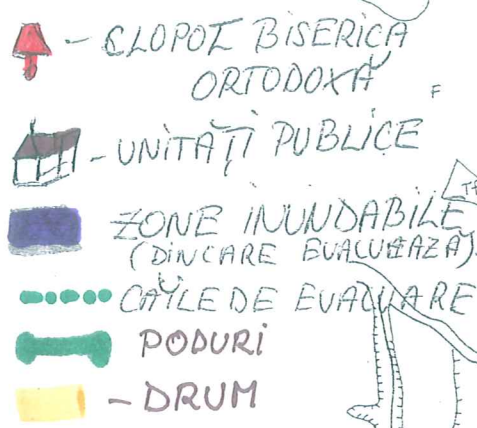 - CLOPOT BISERICA
ORTODOXĂ
F
- UNITĂȚI PUBLICE
ZONE INUNDABILE
(DINCARE EVACUEAZĂ).
CĂILE DE EVACUARE
PODURI
- DRUM